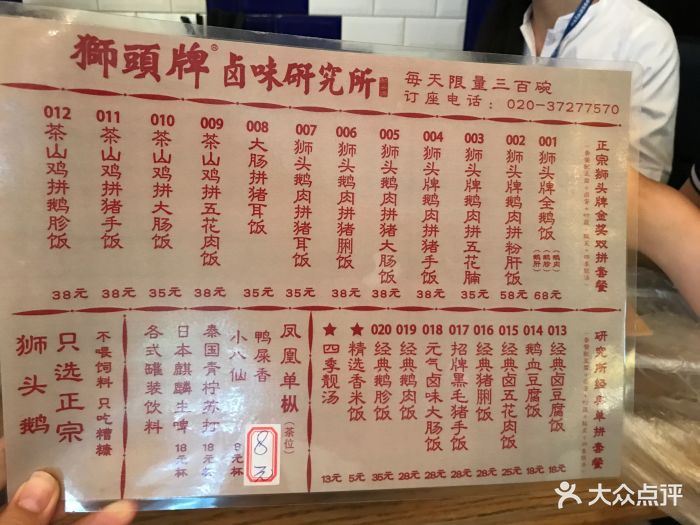 獅頭牌® 卤味研究所
每天限量三百碗
订座电话：020-37277570
正宗狮头牌金奖双拼套餐
001 狮头牌全鹅饭（鹅肉）（鹅胗）（鹅肝） 68元
002 狮头牌鹅肉拼粉肝饭 58元
003 狮头牌鹅肉拼五花腩 35元
004 狮头牌鹅肉拼猪手饭 38元
005 狮头鹅肉拼猪大肠饭 38元
006 狮头鹅肉拼猪脷饭 38元
007 狮头鹅肉拼猪耳饭 35元
008 大肠拼猪耳饭 35元
009 茶山鸡拼五花肉饭 38元
010 茶山鸡拼大肠饭 35元
011 茶山鸡拼猪手饭 38元
012 茶山鸡拼鹅胗饭 38元
研究所经典单拼套餐
013 经典卤豆腐饭 18元
014 鹅血豆腐饭 18元
015 经典卤五花肉饭 25元
016 经典猪脷饭 28元
017 招牌黑毛猪手饭 28元
018 元气卤味大肠饭 28元
019 经典鹅肉饭 28元
020 经典鹅胗饭 35元
★ 精选香米饭 5元
★ 四季靓汤 13元
凤凰单枞（茶位）
鸭屎香
小八仙
8元
泰国青柠苏打 18元/杯
日本麒麟生啤 18元/杯
各式罐装饮料
不喂饲料 只吃糟糠
只选正宗
狮头鹅
大众点评